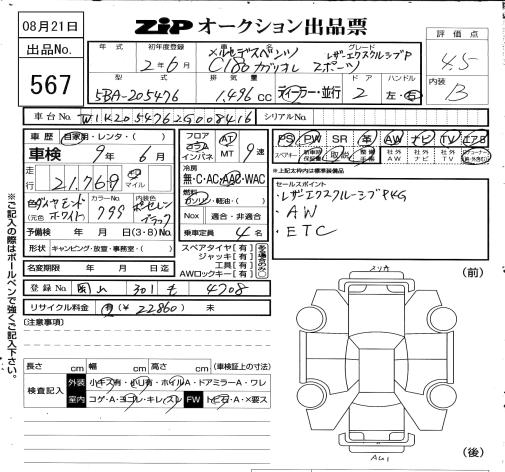 08月21日
ZIP オークション出品票
出品No.
567
年式
初年度登録
2年6月
車名
メルセデスベンツ
C180 カブリオレ スポーツ
グレード
レザーエクスクルーシブP
評価点
4.5
内装
B
型式
5BA-205476
排気量
1,496 cc
ディーラー・並行
ドア
2
ハンドル
左・右
車台No.
W1K2054762G008416
シリアルNo.
車歴 自家用・レンタ・( )
車検 9年 6月
走行 21,769 km マイル
色 ダイヤモンドホワイト
(元色 )
カラーNo.
799
内装色
ブラック
予備検 年 月 日 (3・8)No.
形状 キャンピング・放置・事務室・( )
名変期限 年 月 日迄
登録No. 岡山 301 4708
リサイクル料金 有 (¥ 22860 ) 未
フロア
コラム
インパネ
AT
MT
9速
冷房
無・C・AC・AAC・WAC
燃料
ガソリン・軽油・( )
Nox 適合・非適合
乗車定員 4名
スペアタイヤ【有】
ジャッキ【有】
工具【有】
AWロックキー【有】
ある場合のみ○
PS PW SR 革 AW ナビ TV エアB
スペアキー 新車時保証書 取説 整備手帳 社外AW 社外ナビ 社外TV
*上記太枠内は標準装備品
セールスポイント
・レザーエクスクルーシブPKG
・AW
・ETC
【注意事項】
長さ cm 幅 cm 高さ cm (車検証上の寸法)
検査記入
外装 小キズ有・小凹有・ホイルA・ドアミラーA・ワレ
室内 コゲ・A・ヨゴレ・キレ・スレ FW トビ石・A・×要ス
(前)
スリA
(後)
AU1
※ご記入の際はボールペンで強くご記入下さい。